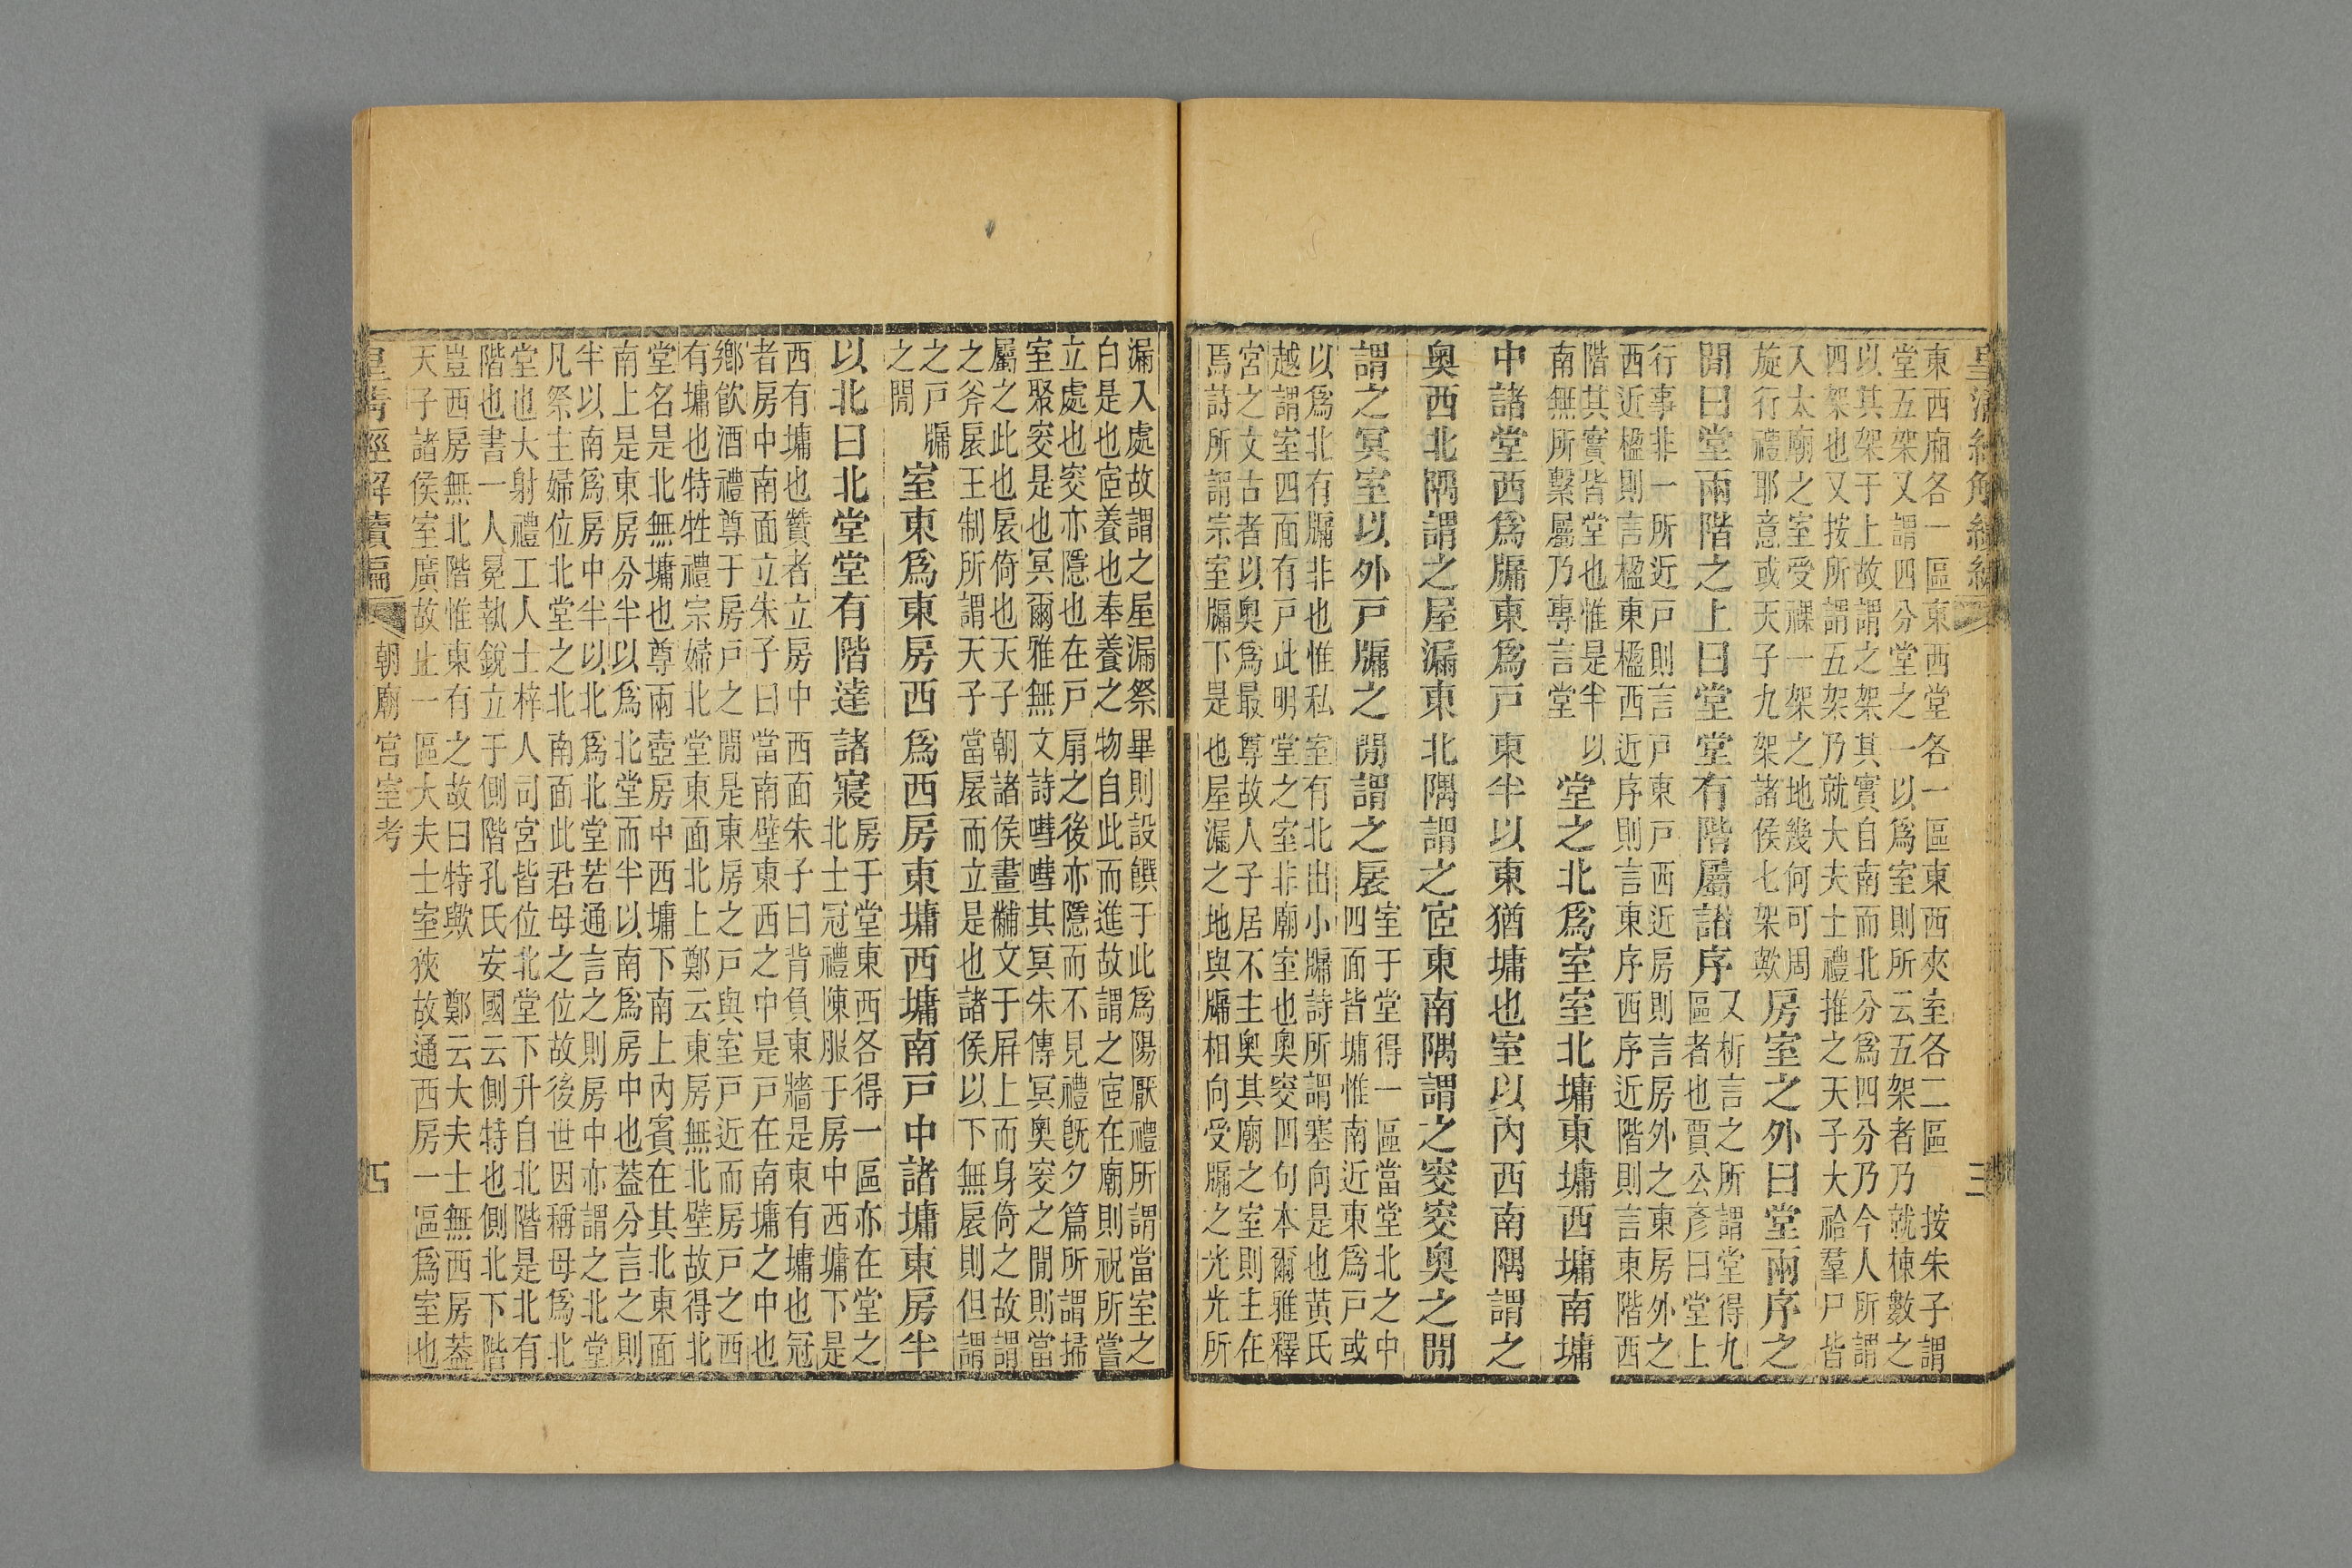 皇清經解續編 三
東西廂各一區東西堂各一區東西夾室各二區 按朱子謂
堂五架又謂四分堂之一以爲室則所云五架者乃就棟數之
以其架于上故謂之架其實自南而北分爲四分乃今人所謂
四架也又按所謂五架乃就大夫士禮推之天子大祫羣尸皆
入太廟之室受祼一架之地幾何可周
旋行禮耶意或天子九架諸侯七架歟
房室之外曰堂兩序之
閒曰堂兩階之上曰堂堂有階屬諸序
又析言之所謂堂得九
區者也賈公彥曰堂上
行事非一所近戶則言戶東戶西近房則言房外之東房外之
西近楹則言楹東楹西近序則言東序西序近階則言東階西
階其實皆堂也惟是半以
南無所繫屬乃專言堂
堂之北爲室室北墉東墉西墉南墉
中諸堂西爲牖東爲戶東半以東猶墉也室以內西南隅謂之
奧西北隅謂之屋漏東北隅謂之宧東南隅謂之窔窔奧之閒
謂之冥室以外戶牖之閒謂之扆
室于堂得一區當堂北之中
四面皆墉惟南近東爲戶或
以爲北有牖非也惟私室有北出小牖詩所謂塞向是也黃氏
越謂室四面有戶此明堂之室非廟室也奧窔四句本爾雅釋
宮之文古者以奧爲最尊故人子居不主奧其廟之室則主在
焉詩所謂宗室牖下是也屋漏之地與牖相向受牖之光光所
漏入處故謂之屋漏祭畢則設饌于此爲陽厭禮所謂當室之
白是也宧養也奉養之物自此而進故謂之宧在廟則祝所嘗
立處也窔亦隱也在戶扇之後亦隱而不見禮旣夕篇所謂掃
室聚窔是也冥爾雅無文詩噦噦其冥朱傳冥奧窔之閒則當
屬之此也扆倚也天子朝諸侯畫黼文于屏上而身倚之故謂
之斧扆王制所謂天子當扆而立是也諸侯以下無扆則但謂
之戶牖
之閒
室東爲東房西爲西房東墉西墉南戶中諸墉東房半
以北曰北堂堂有階達諸寢
房于堂東西各得一區亦在堂之
北士冠禮陳服于房中西墉下是
西有墉也贊者立房中西面朱子曰背負東牆是東有墉也冠
者房中南面立朱子曰當南壁東西之中是戶在南墉之中也
鄉飲酒禮尊于房戶之閒是東房之戶與室戶近而房戶之西
有墉也特牲禮宗婦北堂東面北上鄭云東房無北壁故得北
堂名是北無墉也尊兩壺房中西墉下南上內賓在其北東面
南上是東房分半以爲北堂而半以南爲房中也葢分言之則
半以南爲房中半以北爲北堂若通言之則房中亦謂之北堂
凡祭主婦位北堂之北南面此君母之位故後世因稱母爲北
堂也大射禮工人士梓人司宮皆位北堂下升自北階是北有
階也書一人冕執銳立于側階孔氏安國云側特也側北下階
豈西房無北階惟東有之故曰特歟 鄭云大夫士無西房葢
天子諸侯室廣故止一區大夫士室狹故通西房一區爲室也
皇淸經解續編 朝廟宮室考